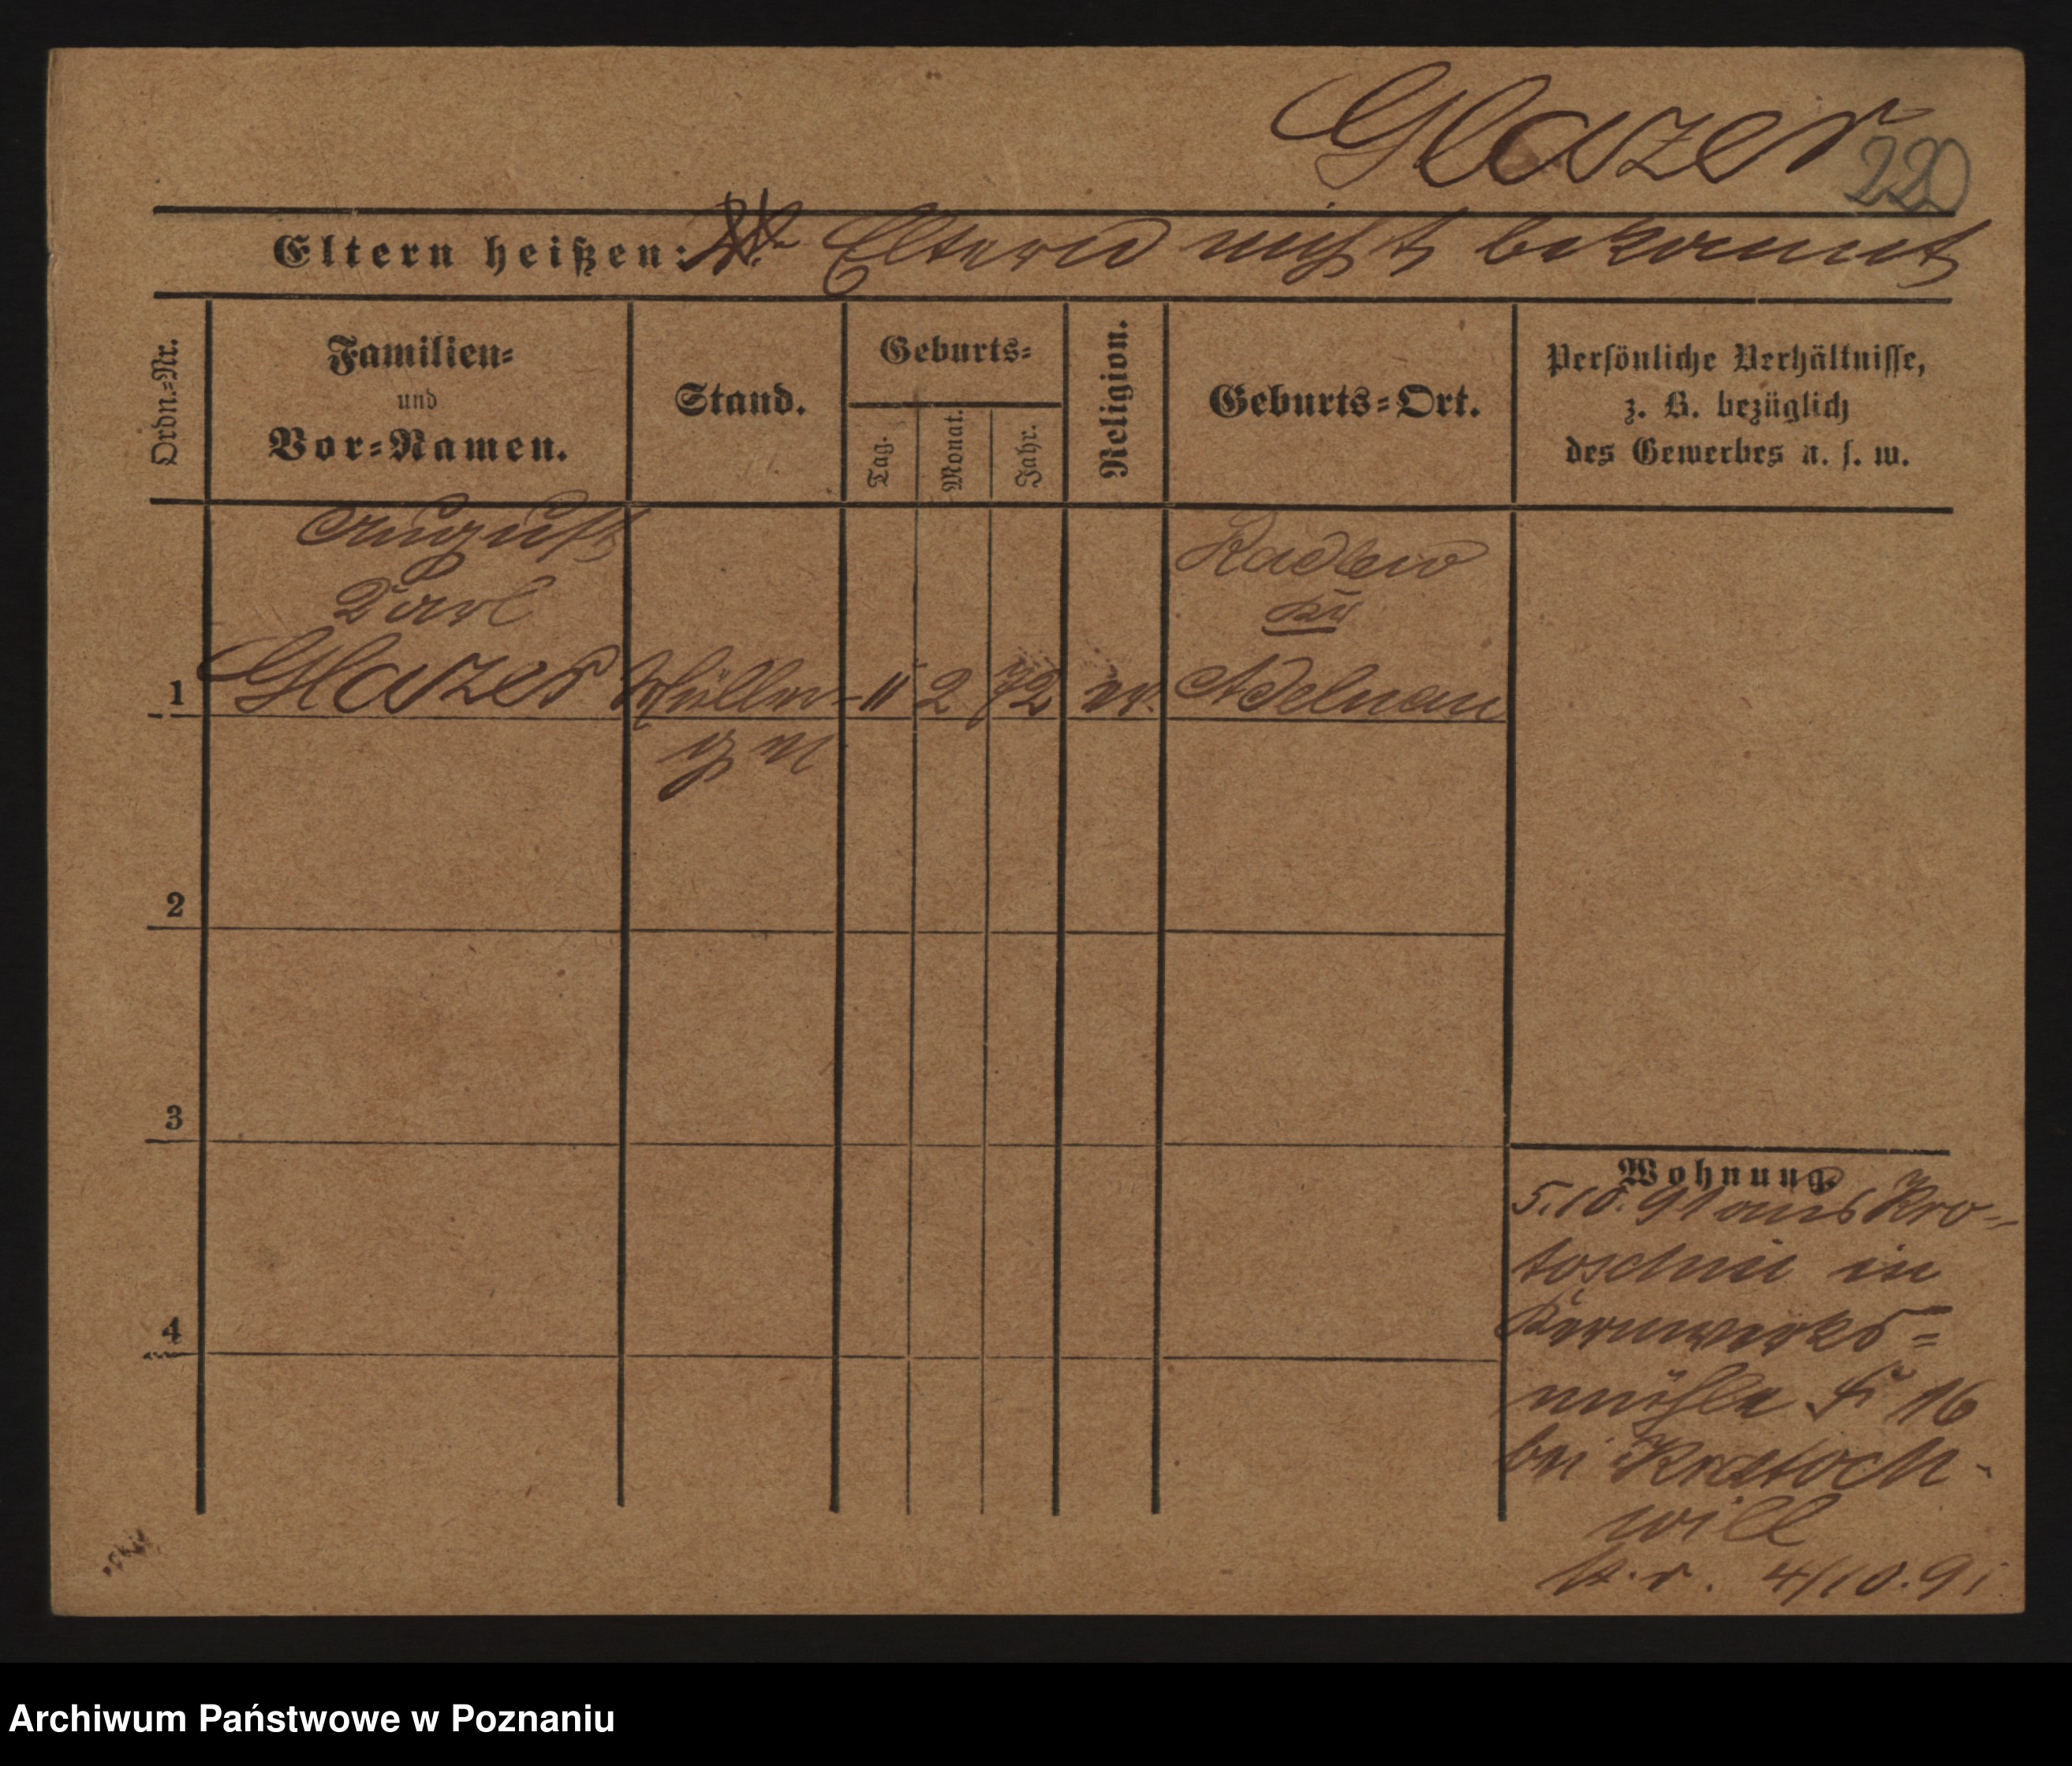 Glazer
220
Eltern heißen: Eltern nicht bekannt
Ordn.=Nr.
Familien=
und
Vor=Namen.
Stand.
Geburts=
Tag.
Monat.
Jahr.
Religion.
Geburts=Ort.
Persönliche Verhältnisse,
z. B. bezüglich
des Gewerbes u. s. w.
August
Carl
Glazer
1
Müller=
11 2 72 ev.
Radlow
Kr
Adelnau
2
3
4
Wohnung.
5.10.91 aus Kro=
toschin in
=
mühle 16
bei Kratoch-
will
4/10.91
Archiwum Państwowe w Poznaniu